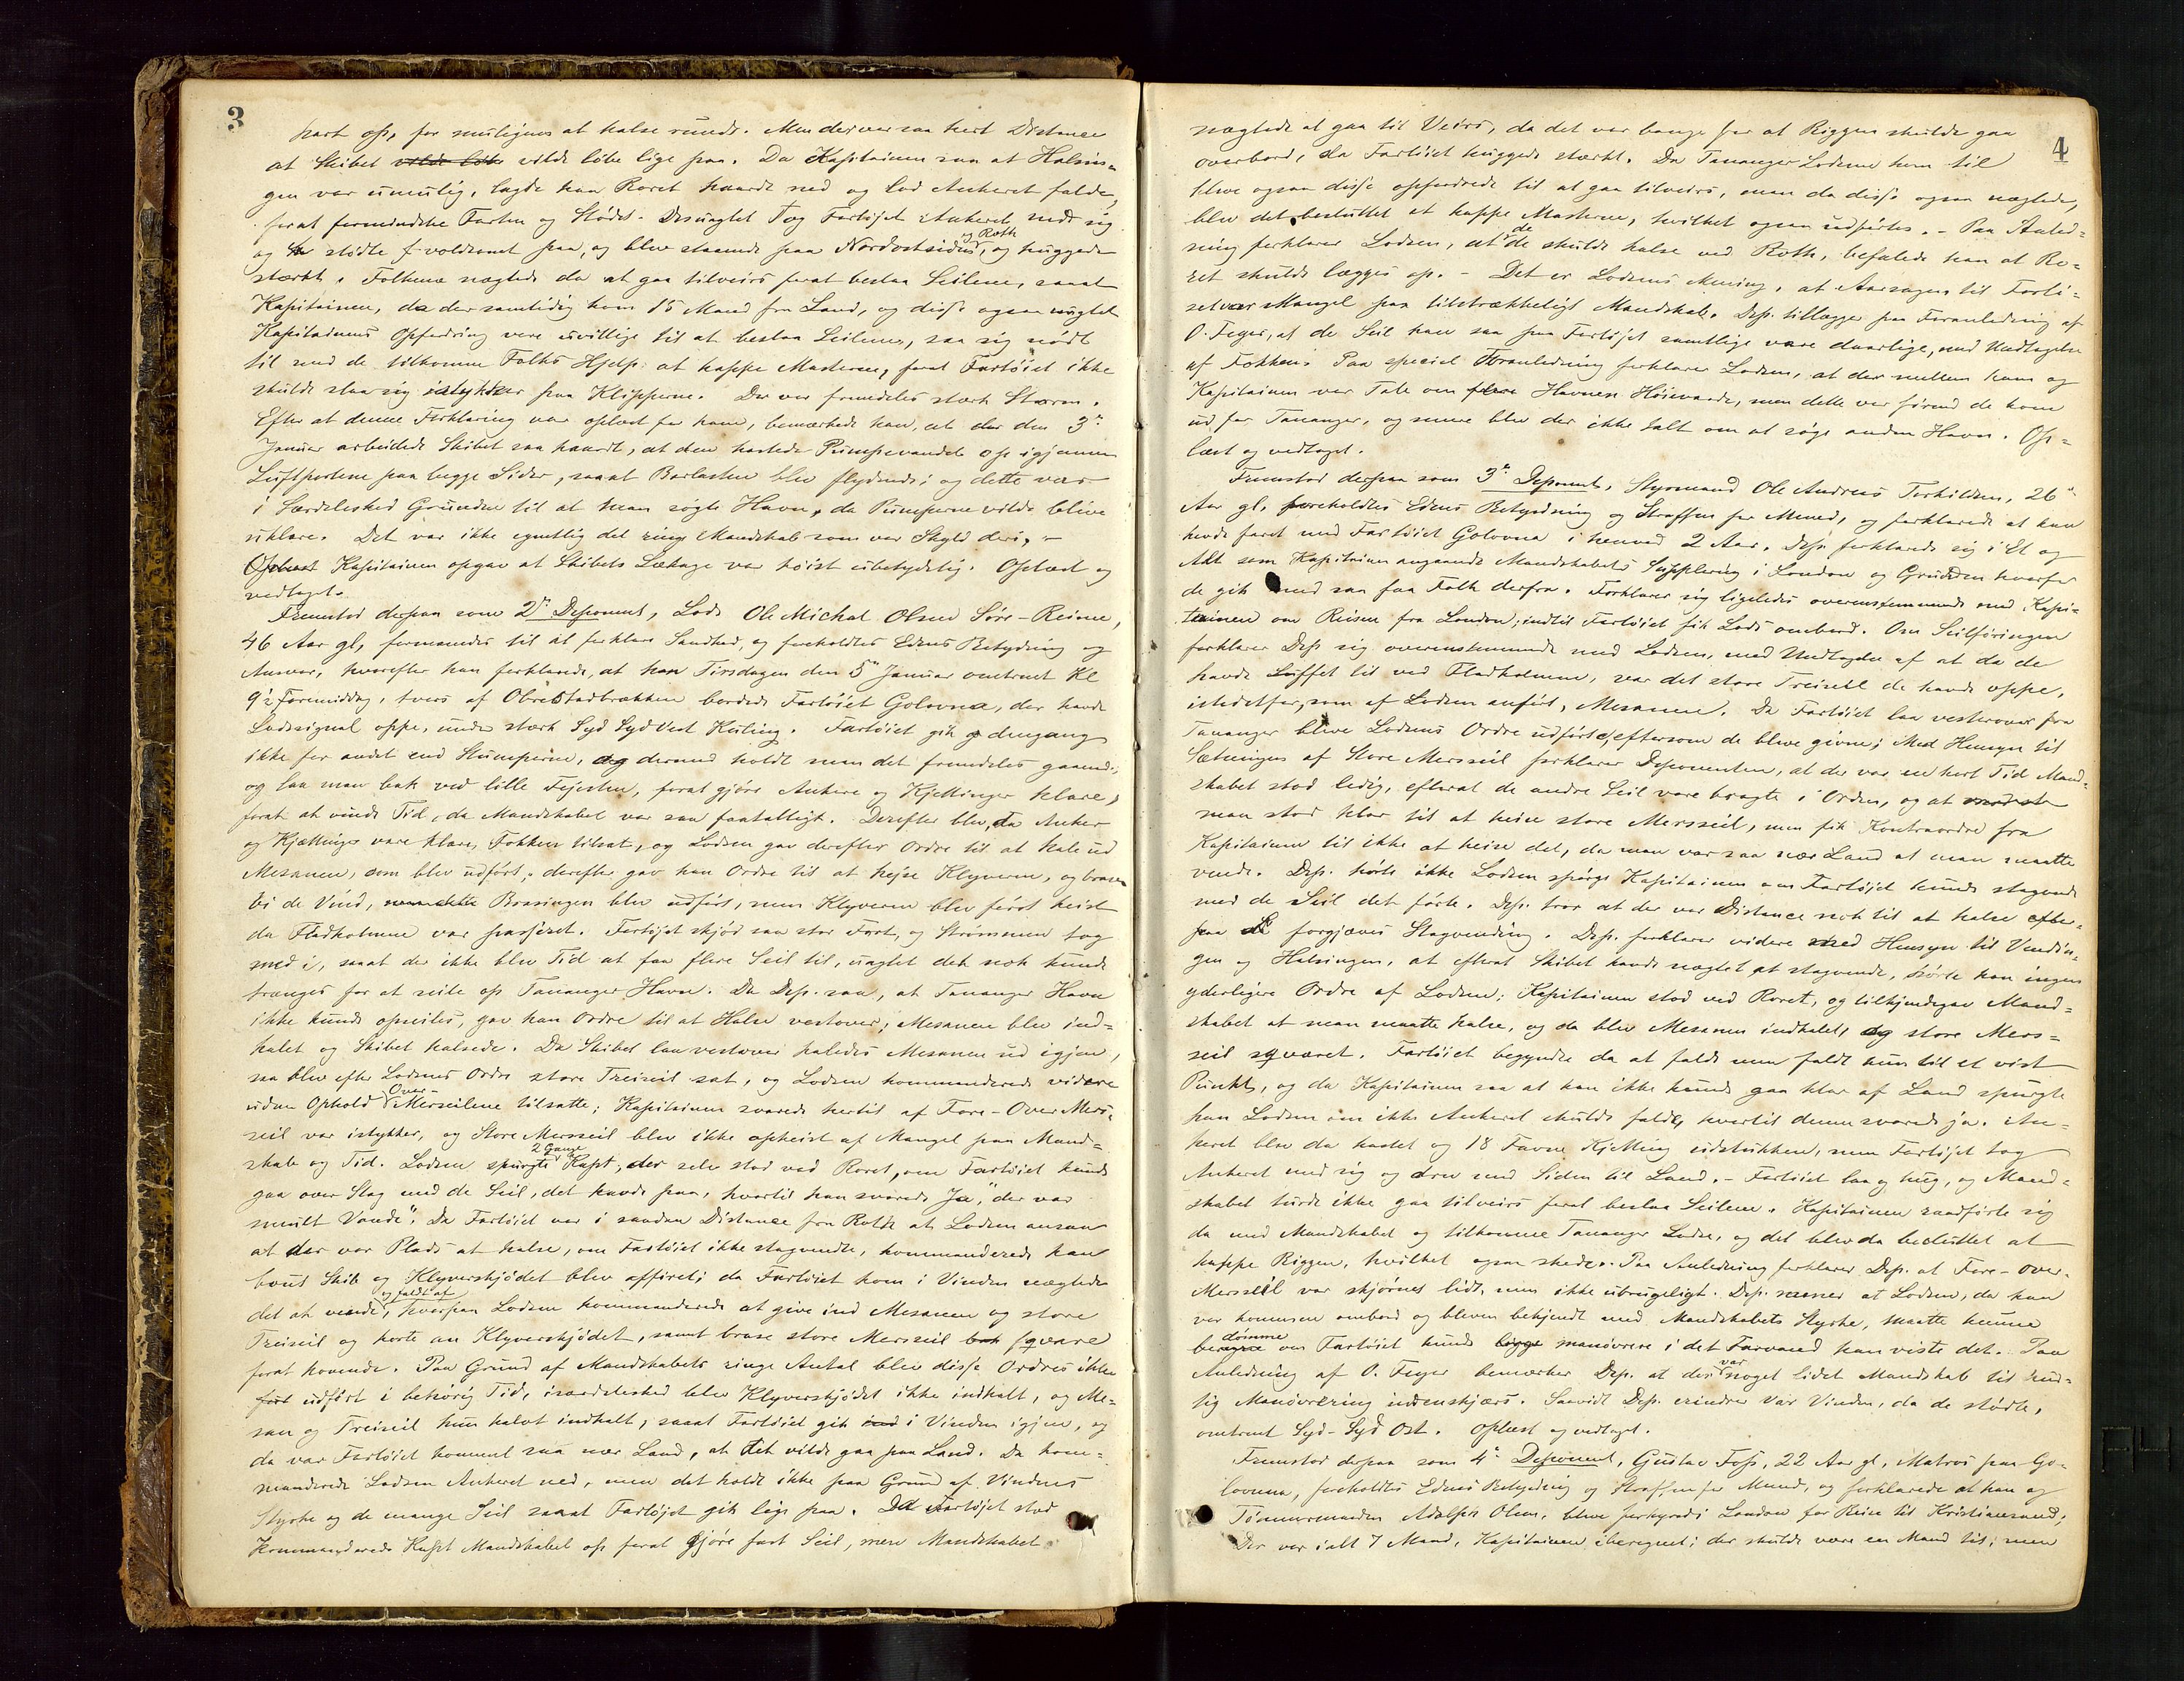 3
hart op, for muligens at halse rundt. Men der var saa kort Distance
at Skibet vilde løbe vilde løbe lige paa. Da Kapitainen saa at Halsin-
gen var umulig, lagde han Roret haardt ned og lod Ankeret falde,
forat formindske Farten og Stødet. Desuagtet tog Fartøjet Ankeret med sig
og stødte voldsomt paa, og blev staaende paa Nordostsiden af Roth, og huggede
stærkt. Folkene nægtede da at gaa tilveirs forat beslaa Seilene, saaat
Kapitainen, da der samtidig kom 15 Mand fra Land, og disse ogsaa uagtet
Kapitainens Opfordring vare uvillige til at beslaa Seilene, saa sig nødt
til med de tilkomne Folks Hjelp at kappe Masterne, forat Fartøiet ikke
skulde slaa sig istykker paa Klipperne. Der var fremdeles stærk Storm.
Efter at denne Forklaring var oplæst for ham, bemærkede han, at der den 3die
Januar arbeidede Skibet saa haardt, at den kastede Pumpevandet op igjennem
Luftportene paa begge Sider, saaat Barlasten blev flydende; og dette var
i Særdeleshed Grunden til at man søgte Havn, da Pumperne vilde blive
uklare. Det var ikke egentlig det ringe Mandskab som var Skyld deri, -
Oplæst Kapitainen opgav at Skibets Lækage var høist ubetydelig. Oplæst og
vedtaget.
Fremstod derpaa som 2den Deponent, Lods Ole Michal Olsen Søre-Reime,
46 Aar gl, formanedes til at forklare Sandhed, og foreholdtes Edens Betydning og
Ansvar, hvorefter han forklarede, at han Tirsdagen den 5te Januar omtrent Kl
9½ Formiddag, tvers af Obrestadbrækken bordede Fartøiet Golovna, der havde
Lodssignal oppe, under stærk Syd Syd Vest Kuling. Fartøiet gik dengang
ikke for andet end Stumperne, og dermed holdt man det fremdeles gaaende,
og laa man bak ved lille Fejesten, forat gjøre Ankere og Kjettinger klare,
forat at vinde Tid, da Mandskabet var saa faatalligt. Derefter blev, da Anker
og Kjættinger vare klare, Fokken tilsat, og Lodsen gav derefter Ordre til at hale ud
Mesanen, som blev udført; derefter gav han Ordre til at hejse Klyveren, og brase
bi de Vind, Brasingen blev udført, men Klyveren blev først heist
da Fladholmene var passeret. Fartøjet skjød saa stor Fart, og Strømmen tog
med i, saaat der ikke blev Tid at faa flere Seil til, uagtet det nok kunde
trænges for at seile op Tananger Havn. Da Dep. saa, at Tananger Havn
ikke kunde opseiles, gav han Ordre til at Halse vestover; Mesanen blev ind-
halet og Skibet halsede. Da Skibet laa vestover haledes Mesanen ud igjen,
saa blev efter Lodsens Ordre store Treiseil sat, og Lodsen kommanderede videre
uden Ophold Over-Merseilene tilsatte; Kapitainen svarede hertil af Fore-Over Mers-
seil var istykker, og Store Mersseil blev ikke opheist af Mangel paa Mand-
skab og Tid. Lodsen spurgte 2 Gange Kapt, der selv stod ved Roret, om Fartøiet kunde
gaa over Stag med de Seil, det havde paa, hvortil han svarede "Ja, der var
smult Vande". Da Fartøiet var i saadan Distance fra Roth at Lodsen ansaa
at der var Plads at halse, om Fartøiet ikke stagvendte, kommanderede han
vend Skib og Klyverskjødet blev affiret; da Fartøiet kom i Vinden nægtede
det at vende og faldt af, hvorpaa Lodsen kommanderede at give ind Mesanen og store
Treiseil og korte an Klyverskjødet, samt brase store Mersseil bak sqvare
forat kovende. Paa Grund af Mandskabets ringe Antal blev disse Ordres ikke
fort udført i behørig Tid, isærdeleshed blev Klyverskjødet ikke indhalt, og Me-
san og Treiseil kun halvt indhalt, saaat Fartøiet gik ind i Vinden igjen, og
da var Fartøiet kommet saa nær Land, at det vilde gaa paa Land. Da kom-
manderede Lodsen Ankeret ned, men det holdt ikke paa Grund af Vindens
Styrke og de mange Seil saaat Fartøjet gik lige paa. Da Fartøjet stod
Kommanderede Kapt Mandskabet op forat gjøre fast Seil, men Mandskabet
4
nægtede at gaa til Veirs, da det var bange for at Riggen skulde gaa
overbord, da Fartøiet huggede stærkt. Da Tananger Lodsene kom til
bleve ogsaa disse opfordrede til at gaa tilveirs, men da disse ogsaa nægtede,
blev det besluttet at kappe Masterne, hvilket ogsaa udførtes. - Paa Anled-
ning forklarer Lodsen, at da de skulde halse ved Roth, befalede han at Ro-
ret skulde lægges op. - Det er Lodsens Mening, at Aarsagen til Forli-
set var Mangel paa tilstrækkeligt Mandskab. Dep. tillægger paa Foranledning af
O. Feyer, at de Seil han saa paa Fartøjet samtlige vare daarlige, med Undtagelse
af Fokken. Paa speciel Foranledning forklarer Lodsen, at der mellem ham og
Kapitainen var Tale om flere Havnen Høievarde, men dette var førend de kom
ud for Tananger, og senere blev der ikke talt om at søge anden Havn. Op-
læst og vedtaget.
Fremstod derpaa som 3die Deponent, Styrmand Ole Andreas Terkildsen, 26
Aar gl, foreholdtes Edens Betydning og Straffen for Mened, og forklarede at han
havde faret med Fartøiet Golovna i henved 2 Aar. Dep. forklarede sig i Et og
Alt som Kapitainen angaaende Mandskabets Supplering i London og Grunden hvorfor
de gik med saa faa Folk derfra. Forklarer sig ligeledes overensstemmende med Kapi-
tainen om Reisen fra London, indtil Fartøiet fik Lods ombord. Om Seilføringen
forklarer Dep sig overensstemmende med Lodsen, med Undtagelse af at da de
havde Luffet til ved Fladholmene, var det store Treiseil de havde oppe,
istedetfor, som af Lodsen anført, Mesanen. Da Fartøiet laa vestover fra
Tananger bleve Lodsens Ordre udførte, eftersom de bleve givne; Med Hensyn til
Sætningen af Store Mersseil forklarer Deponenten, at der var en kort Tid Mand-
skabet stod ledig, efterat de andre Seil vare bragte i Orden, og at
man stod klar til at heise store Mersseil, men fik Kontraordre fra
Kapitainen til ikke at heise det, da man var saa nær Land at man maatte
vende. Dep. hørte ikke Lodsen spørge Kapitainen om Fartøjet kunde stagvende
med de Seil det førte. Dep. tror at der var Distance nok til at halse efter
paa forgjæves Stagvending. Dep. forklarer videre med Hensyn til Vendin-
gen og Halsingen, at efterat Skibet havde nægtet at stagvende, hørte han ingen
yderligere Ordre af Lodsen; Kapitainen stod ved Roret, og tilkjendegav Mand-
skabet at man maatte halse, og da blev Mesanen indhalet, og store Mers-
seil sqværet. Fartøiet begyndte da at falde men faldt kun til et vist
Punkt, og da Kapitainen saa at han ikke kunde gaa klar af Land spurgte
han Lodsen om ikke Ankeret skulde falde, hvortil denne svarede ja. An-
keret blev da kastet og 18 Favne Kjetting udstukken, men Fartøjet tog
Ankeret med sig og drev med Siden til Land. - Fartøiet laa og hug, og Mand-
skabet turde ikke gaa tilveirs forat beslaa Seilene. Kapitainen raadførte sig
da med Mandskabet og tilkomne Tananger Lodse, og det blev da besluttet at
kappe Riggen, hvilket ogsaa skede. Paa Anledning forklarer Dep. at Fore-over-
Mersseil var skjørnet lidt, men ikke ubrugeligt. Dep. mener at Lodsen, da han
var kommen ombord og bleven bekjendt med Mandskabets Styrke, maatte kunne
bedømme om Fartøiet kunde ligge manøvrere i det Farvand han viste det. Paa
Anledning af O. Feyer bemærker Dep. at der var noget lidet Mandskab til hur-
tig Manøvrering indenskjærs. Saavidt Dep. erindrer var Vinden, da de stødte,
omtrent Syd-Syd Ost. Oplæst og vedtaget.
Fremstod derpaa som 4de Deponent, Gustav Foss, 22 Aar gl, Matros paa Go-
lovna, foreholdtes Edens Betydning og Straffen for Mened, og forklarede at han og
Tømmermanden Adolph Olsen, bleve forhyrede i London for Reise til Kristianssand;
Der var ialt 7 Mand, Kapitainen iberegnet; der skulde være en Mand til; men